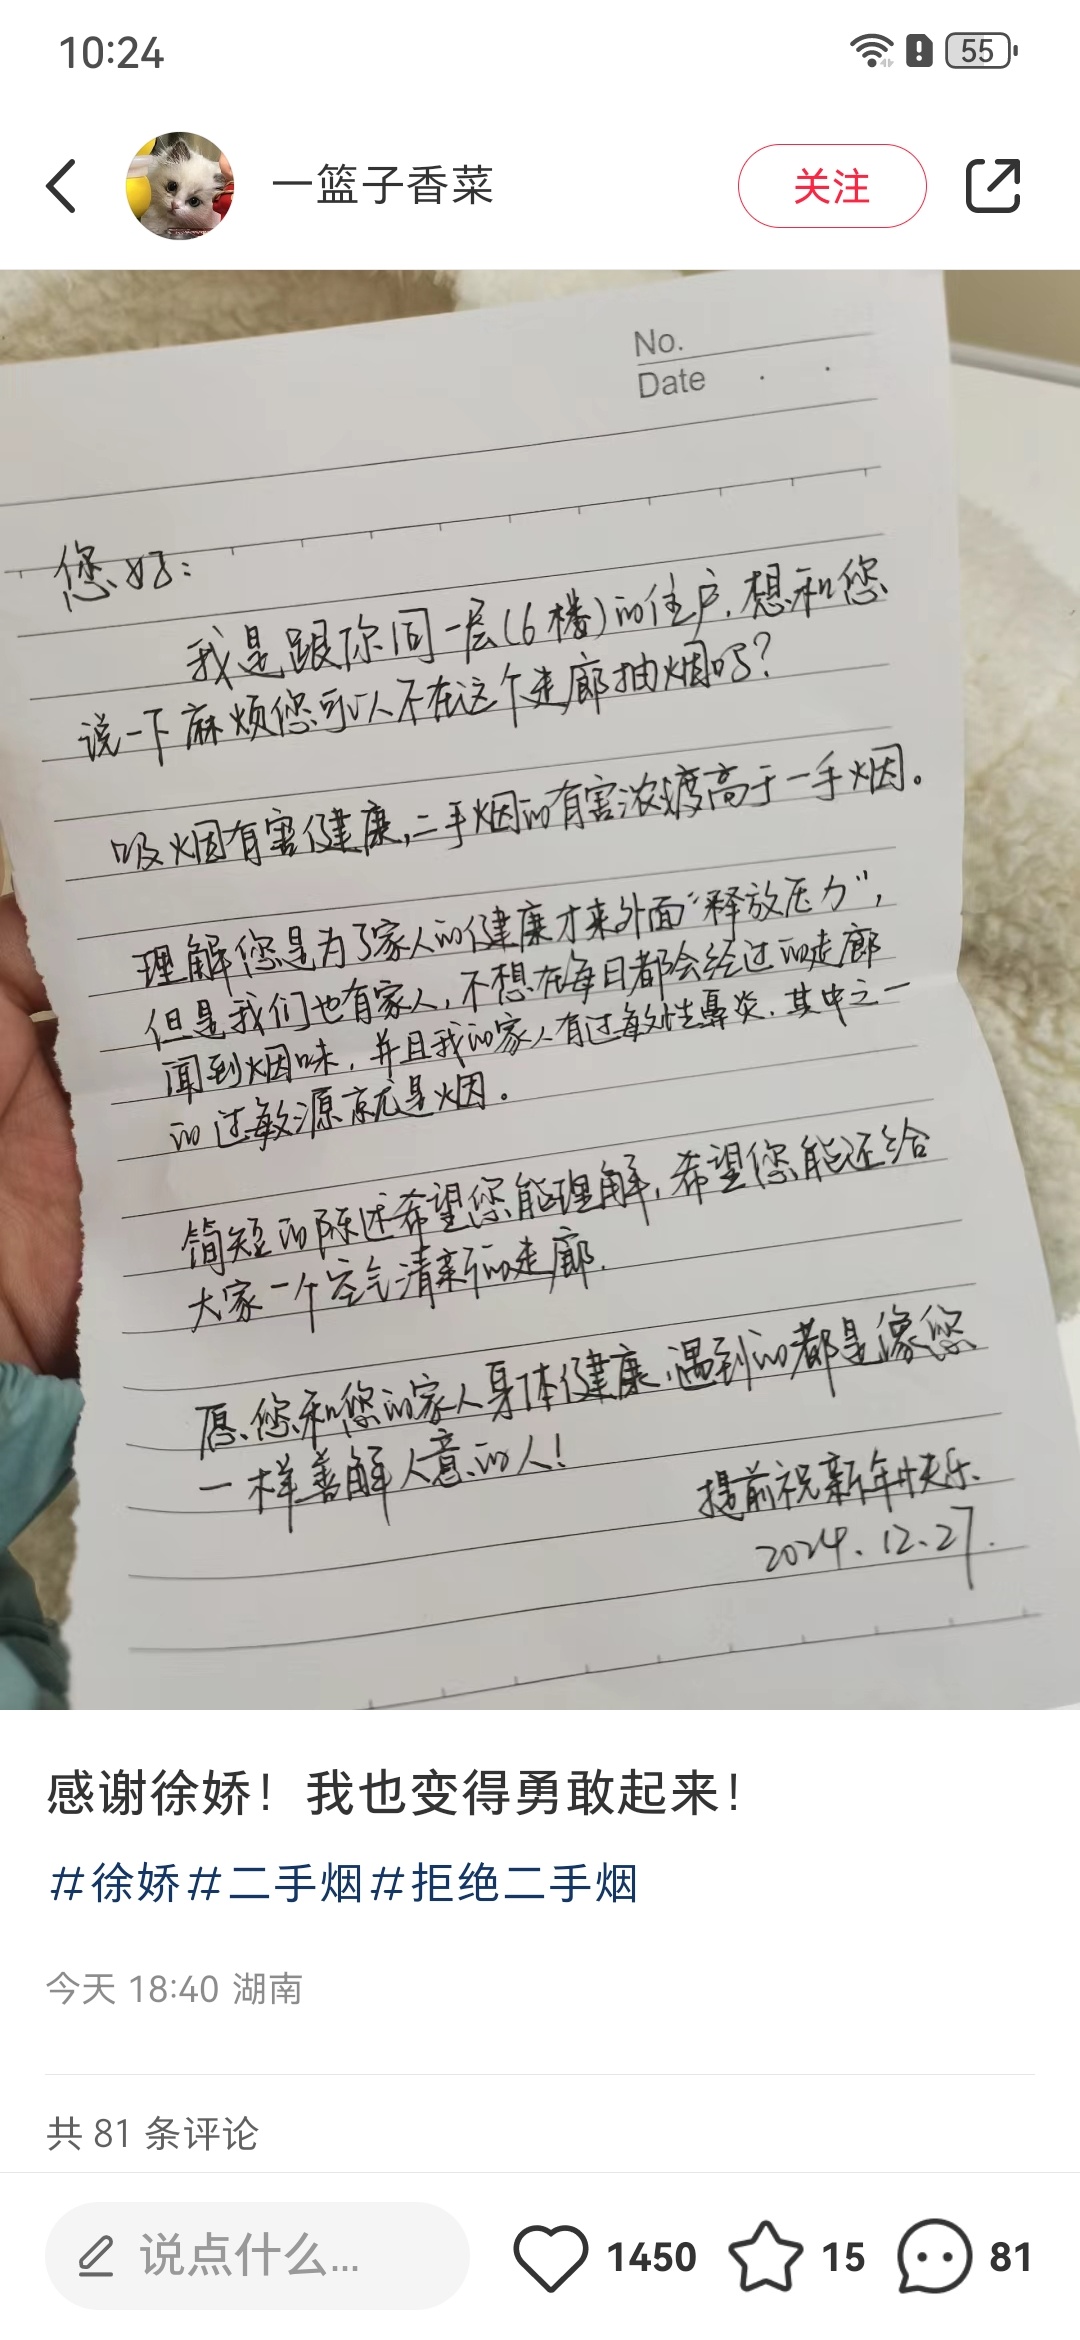 10:24
55
一篮子香菜
关注
No.
Date
您好：
我是跟你同一层(6楼)的住户，想和您
说一下麻烦您可以不在这个走廊抽烟吗？
吸烟有害健康，二手烟的有害浓度高于一手烟。
理解您是为了家人的健康才来外面“释放压力”，
但是我们也有家人，不想在每日都会经过的走廊
闻到烟味，并且我的家人有过敏性鼻炎，其中之一
的过敏源就是烟。
简短的陈述希望您能理解，希望您能还给
大家一个空气清新的走廊.
愿您和您的家人身体健康，遇到的都是像您
一样善解人意的人！
提前祝新年快乐、
2024.12.27.
感谢徐娇！我也变得勇敢起来！
#徐娇#二手烟#拒绝二手烟
今天 18:40 湖南
共 81 条评论
说点什么...
1450
15
81